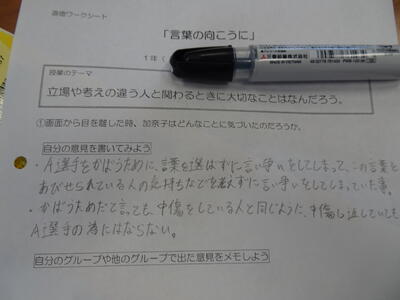 道徳ワークシート
「言葉の向こうに」
1年（
授業のテーマ
立場や考えの違う人と関わるときに大切なことはなんだろう。
①画面から目を離した時、加奈子はどんなことに気づいたのだろうか。
自分の意見を書いてみよう
・A選手をかばうために、言葉を選ばずに言い争いをしてしまって、この言葉を
あびせられている人の気持ちなどを考えずに言い争いをしてしまっていた事。
・かばうためだと言っても、中傷をしている人と同じように、中傷し返していても
A選手の為にはならない。
自分のグループや他のグループで出た意見をメモしよう